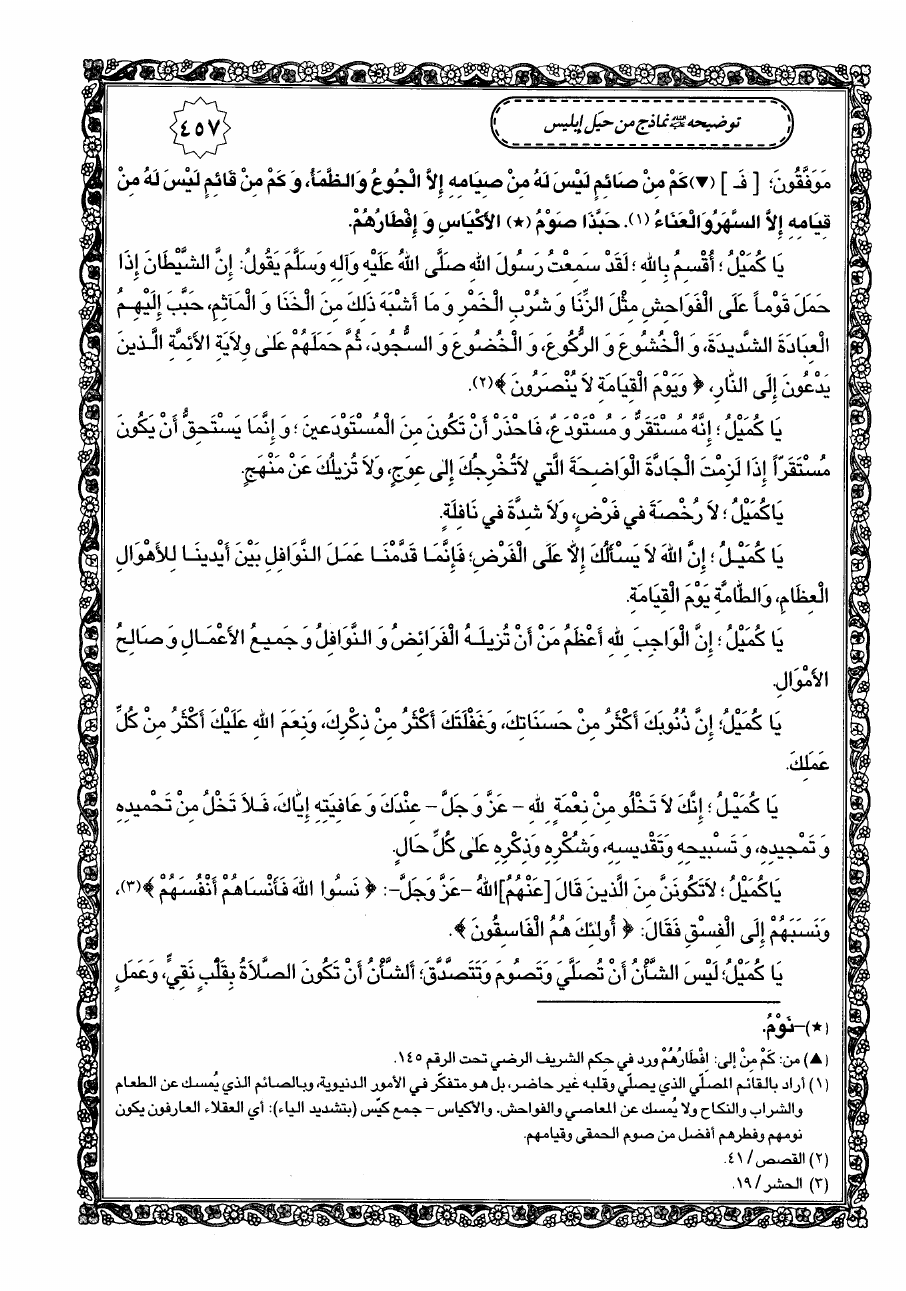 توضيحه نماذج من حيل إبليس
٤٥٧
مَوَفَّقُونَ؛ [ فَـ ] (▼)كَمْ مِنْ صَائِمٍ لَيْسَ لَهُ مِنْ صِيَامِهِ إِلاَّ الْجُوعُ وَالظَّمَأُ، وَ كَمْ مِنْ قَائِمٍ لَيْسَ لَهُ مِنْ
قِيَامِهِ إِلاَّ السَّهَرُ وَالْعَنَاءُ (١). حَبَّذَا صَوْمُ (★) الأَكْيَاسِ وَ إِفْطَارُهُمْ.
يَا كُمَيْلُ؛ أُقْسِمُ بِاللهِ؛ لَقَدْ سَمِعْتُ رَسُولَ اللهِ صَلَّى اللهُ عَلَيْهِ وَآلِهِ وَسَلَّمَ يَقُولُ: إِنَّ الشَّيْطَانَ إِذَا
حَمَلَ قَوْماً عَلَى الْفَوَاحِشِ مِثْلَ الزِّنَا وَ شُرْبِ الْخَمْرِ وَ مَا أَشْبَهَ ذَلِكَ مِنَ الْخَنَا وَ الْمَآثِمِ، حَبَّبَ إِلَيْهِمُ
الْعِبَادَةَ الشَّدِيدَةَ، وَ الْخُشُوعَ وَ الرُّكُوعَ، وَ الْخُضُوعَ وَ السُّجُودَ، ثُمَّ حَمَلَهُمْ عَلىٰ وِلاَيَةِ الأَئِمَّةِ الَّذِينَ
يَدْعُونَ إِلَى النَّارِ، ﴿ وَيَوْمَ الْقِيَامَةِ لاَ يُنْصَرُونَ ﴾(٢).
يَا كُمَيْلُ؛ إِنَّهُ مُسْتَقَرٌّ وَ مُسْتَوْدَعٌ، فَاحْذَرْ أَنْ تَكُونَ مِنَ الْمُسْتَوْدَعِينَ؛ وَ إِنَّمَا يَسْتَحِقُّ أَنْ يَكُونَ
مُسْتَقَرّاً إِذَا لَزِمْتَ الْجَادَّةَ الْوَاضِحَةَ الَّتِي لاَتُخْرِجُكَ إِلىٰ عِوَجٍ، وَلاَ تُزِيلُكَ عَنْ مَنْهَجٍ.
يَاكُمَيْلُ؛ لاَ رُخْصَةَ فِي فَرْضٍ، وَلاَ شِدَّةَ فِي نَافِلَةٍ.
يَا كُمَيْلُ؛ إِنَّ اللهَ لاَ يَسْأَلُكَ إِلاَّ عَلَى الْفَرْضِ؛ فَإِنَّمَا قَدَّمْنَا عَمَلَ النَّوَافِلِ بَيْنَ أَيْدِينَا لِلأَهْوَالِ
الْعِظَامِ، وَالطَّامَّةِ يَوْمَ الْقِيَامَةِ.
يَا كُمَيْلُ؛ إِنَّ الْوَاجِبَ لِلهِ أَعْظَمُ مَنْ أَنْ تُزِيلَهُ الْفَرَائِضُ وَ النَّوَافِلُ وَ جَمِيعُ الأَعْمَالِ وَ صَالِحُ
الأَمْوَالِ.
يَا كُمَيْلُ؛ إِنَّ ذُنُوبَكَ أَكْثَرُ مِنْ حَسَنَاتِكَ، وَغَفْلَتَكَ أَكْثَرُ مِنْ ذِكْرِكَ، وَنِعَمَ اللهِ عَلَيْكَ أَكْثَرُ مِنْ كُلِّ
عَمَلِكَ.
يَا كُمَيْلُ؛ إِنَّكَ لاَ تَخْلُو مِنْ نِعْمَةٍ لِلهِ - عَزَّ وَ جَلَّ - عِنْدَكَ وَ عَافِيَتِهِ إِيَّاكَ، فَلاَ تَخْلُ مِنْ تَحْمِيدِهِ
وَ تَمْجِيدِهِ، وَ تَسْبِيحِهِ وَتَقْدِيسِهِ، وَشُكْرِهِ وَذِكْرِهِ عَلىٰ كُلِّ حَالٍ.
يَاكُمَيْلُ؛ لاَتَكُونَنَّ مِنَ الَّذِينَ قَالَ [عَنْهُمُ]اللهُ -عَزَّ وَجَلَّ-: ﴿ نَسُوا اللهَ فَأَنْسَاهُمْ أَنْفُسَهُمْ ﴾(٣)،
وَنَسَبَهُمْ إِلَى الْفِسْقِ فَقَالَ: ﴿ أُولئِكَ هُمُ الْفَاسِقُونَ ﴾.
يَا كُمَيْلُ؛ لَيْسَ الشَّأْنُ أَنْ تُصَلِّيَ وَتَصُومَ وَتَتَصَدَّقَ؛ اَلشَّأْنُ أَنْ تَكُونَ الصَّلاَةُ بِقَلْبٍ نَقِيٍّ، وَعَمَلٍ
(★)-نَوْمُ.
(▲) من: كَمْ مِنْ إلى: إِفْطَارُهُمْ ورد في حكم الشريف الرضي تحت الرقم ١٤٥.
(١) أراد بالقائم المصلّي الذي يصلّي وقلبه غير حاضر، بل هو متفكّر في الأمور الدنيوية، وبالصائم الذي يُمسك عن الطعام
والشراب والنكاح ولا يُمسك عن المعاصي والفواحش. والأكياس - جمع كيّس (بتشديد الياء): أي العقلاء العارفون يكون
نومهم وفطرهم أفضل من صوم الحمقى وقيامهم.
(٢) القصص/ ٤١.
(٣) الحشر/ ١٩.